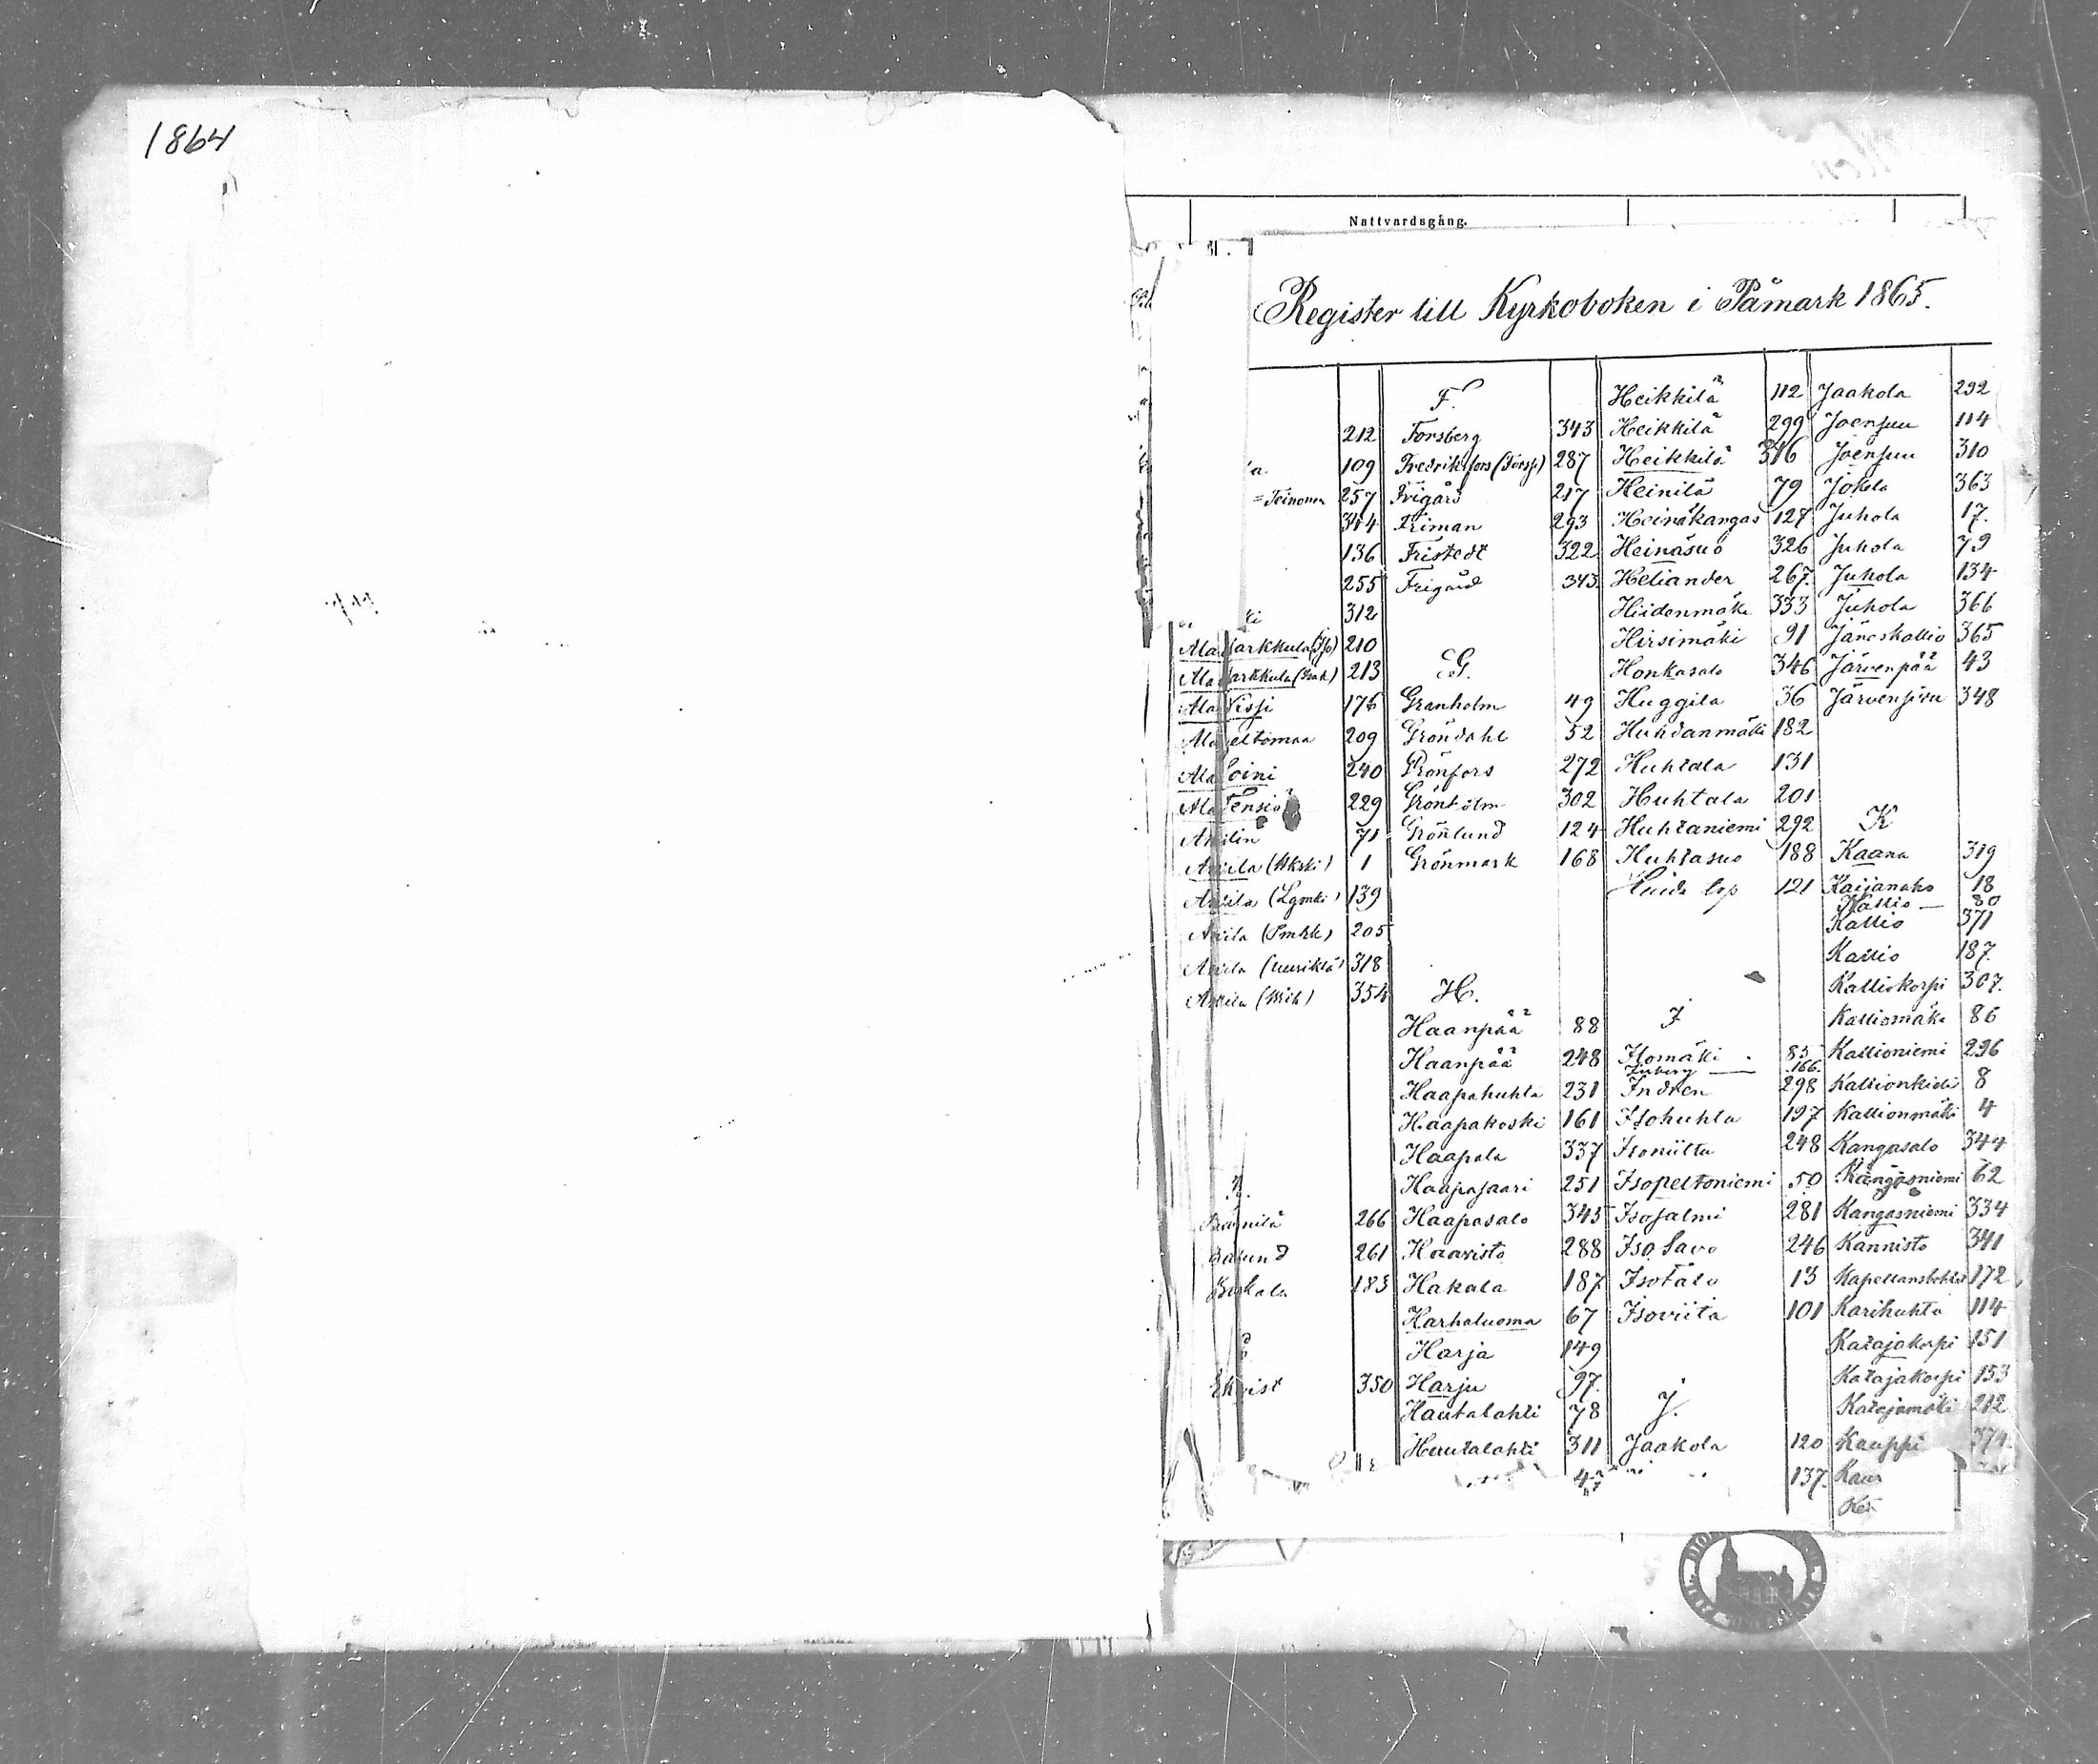 1864
Nattvardsgång.
Register till Kyrkoboken i Påmark 1865.
212
109
=Teinonen 257
344
136
255
312
Ala Markkula 210
Ala Markkula 213
Ala Nissi 176
Ala Peltomaa 209
Ala Soini 240
229
Anttila 1
Anttila 139
Anttila (Pmrk) 205
Anttila 318
Anttila 354
266
261
183
Ekqvist 350
F.
Forsberg 343
Fredriksfors 287
Frigård 217
Friman 293
Fristedt 322
Frigård 343
G.
Granholm 49
Gröndahl 52
Grönfors 272
Grönholm 302
Grönlund 124
Grönmark 168
H.
Haanpää 88
Haanpää 248
Haapahuhta 231
Haapakoski 161
Haapala 337
Haapasaari 251
Haapasalo 345
Haavisto 288
Hakala 187
Harhaluoma 67
Harja 149
Harju 97.
Hautalahti 78
Hautalahti 311
Heikkilä 112
Heikkilä 299
Heikkilä 316
Heinilä 79
Heinäkangas 127
Heinäsuo 326
Heliander 267.
Hiidenmäki 333
Hirsimäki 91
Honkasalo 346
Huggila 36
Huhdanmäki 182
Huhtala 131
Huhtala 201
Huhtaniemi 292
Huhtasuo 188
121
I
Ilomäki 85
166.
Indren 298
Isohuhta 197
Isoniittu 248
Isopeltoniemi 50
Isosalmi 281
Iso Savo 246
Isotalo 13
Isoviita 101
J.
Jaakola 120
137.
Jaakola 292
Joensuu 114
Joensuu 310
Jokela 363
Juhola 17.
Juhola 79
Juhola 134
Juhola 366
Jäneskallio 365
Järvenpää 43
Järvensivu 348
K
Kaana 319
Kaijanaho 18
Kallio — 80
Kallio 371
Kallio 187.
Kalliokorpi 307.
Kalliomäki 86
Kallioniemi 296
8
Kallionmäki 4
Kangasalo 344
Kangasniemi 62
Kangasniemi 334
Kannisto 341
172
Karihuhta 114
Katajakorpi 151
Katajakorpi 153
Katajamäki 212
Kauppi 374.